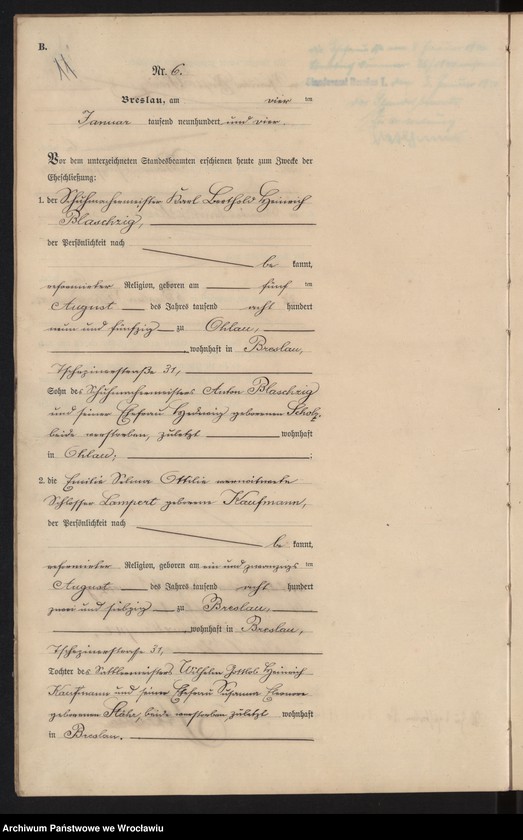 B.
11
Nr. 6.
Breslau, am vierten
Januar tausend neunhundert und vier.
Vor dem unterzeichneten Standesbeamten erschienen heute zum Zwecke der
Eheschließung:
1. der Schuhmachermeister Karl Berthold Heinrich
Blaschzig,
der Persönlichkeit nach
be kannt,
reformierter Religion, geboren am fünf ten
August des Jahres tausend acht hundert
neun und fünfzig zu Ohlau,
, wohnhaft in Breslau,
31,
Sohn des Schuhmachermeisters Anton Blaschzig
und seiner Ehefrau Hedewig geborenen Scholz,
beide verstorben, zuletzt wohnhaft
in Ohlau;
2. die Emilie Selma Ottilie verwitwete
Schlosser Lampert geborene Kaufmann,
der Persönlichkeit nach
be kannt,
reformierter Religion, geboren am ein und zwanzigs ten
August des Jahres tausend acht hundert
zwei und siebzig zu Breslau,
, wohnhaft in Breslau,
31,
Tochter des Sattlermeisters Wilhelm Gottlob Heinrich
Kaufmann und seiner Ehefrau Susanna Eleonore
geborenen beide verstorben, zuletzt wohnhaft
in Breslau.
Archiwum Państwowe we Wrocławiu